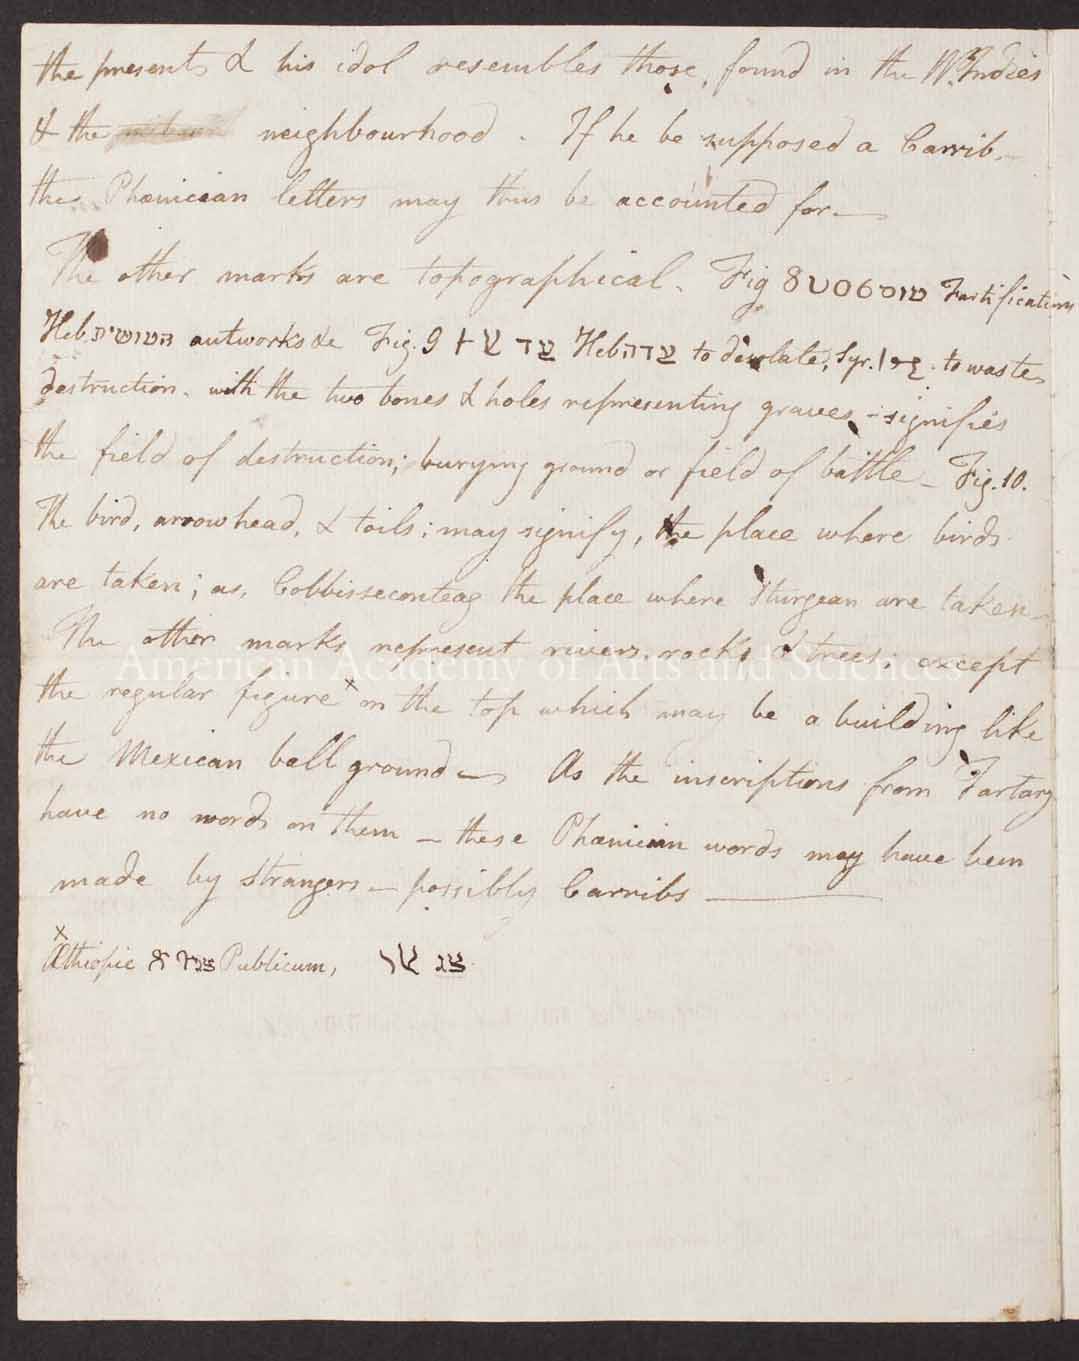 the present, & his idol resembles those, found in the W. Indies
& the neighbourhood. If he be supposed a Carrib,
the Phœnician letters may thus be accounted for.—
The other marks are topographical. Fig 8 Fortifications
Heb. outworks &c Fig. 9 שד Heb שדה to desolate, Syr. to waste,
destruction. with the two bones & holes representing graves, signifies
the field of destruction; burying ground or field of battle— Fig. 10.
The bird, arrowhead, & toils; may signify, the place where birds
are taken; as, Cobbisseconteag the place where Sturgeon are taken—
The other marks represent rivers, rocks & trees; except
the regular figure x on the top which may be a building like
the Mexican ball ground— As the inscriptions from Tartary
have no words on them — these Phœnician words may have been
made by strangers— possibly Carribs —
x
Æthiopic Publicum,
American Academy of Arts and Sciences